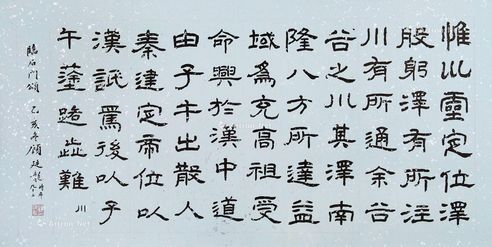 惟巛靈定位澤
股躬澤有所注
川有所通余谷
谷之川其澤南
隆八方所達益
域爲充高祖受
命興於漢中道
由子午出散入
秦建定帝位以
漢詆焉後以子
午塗路歰難 川
臨石門頌 乙亥冬顧廷龍